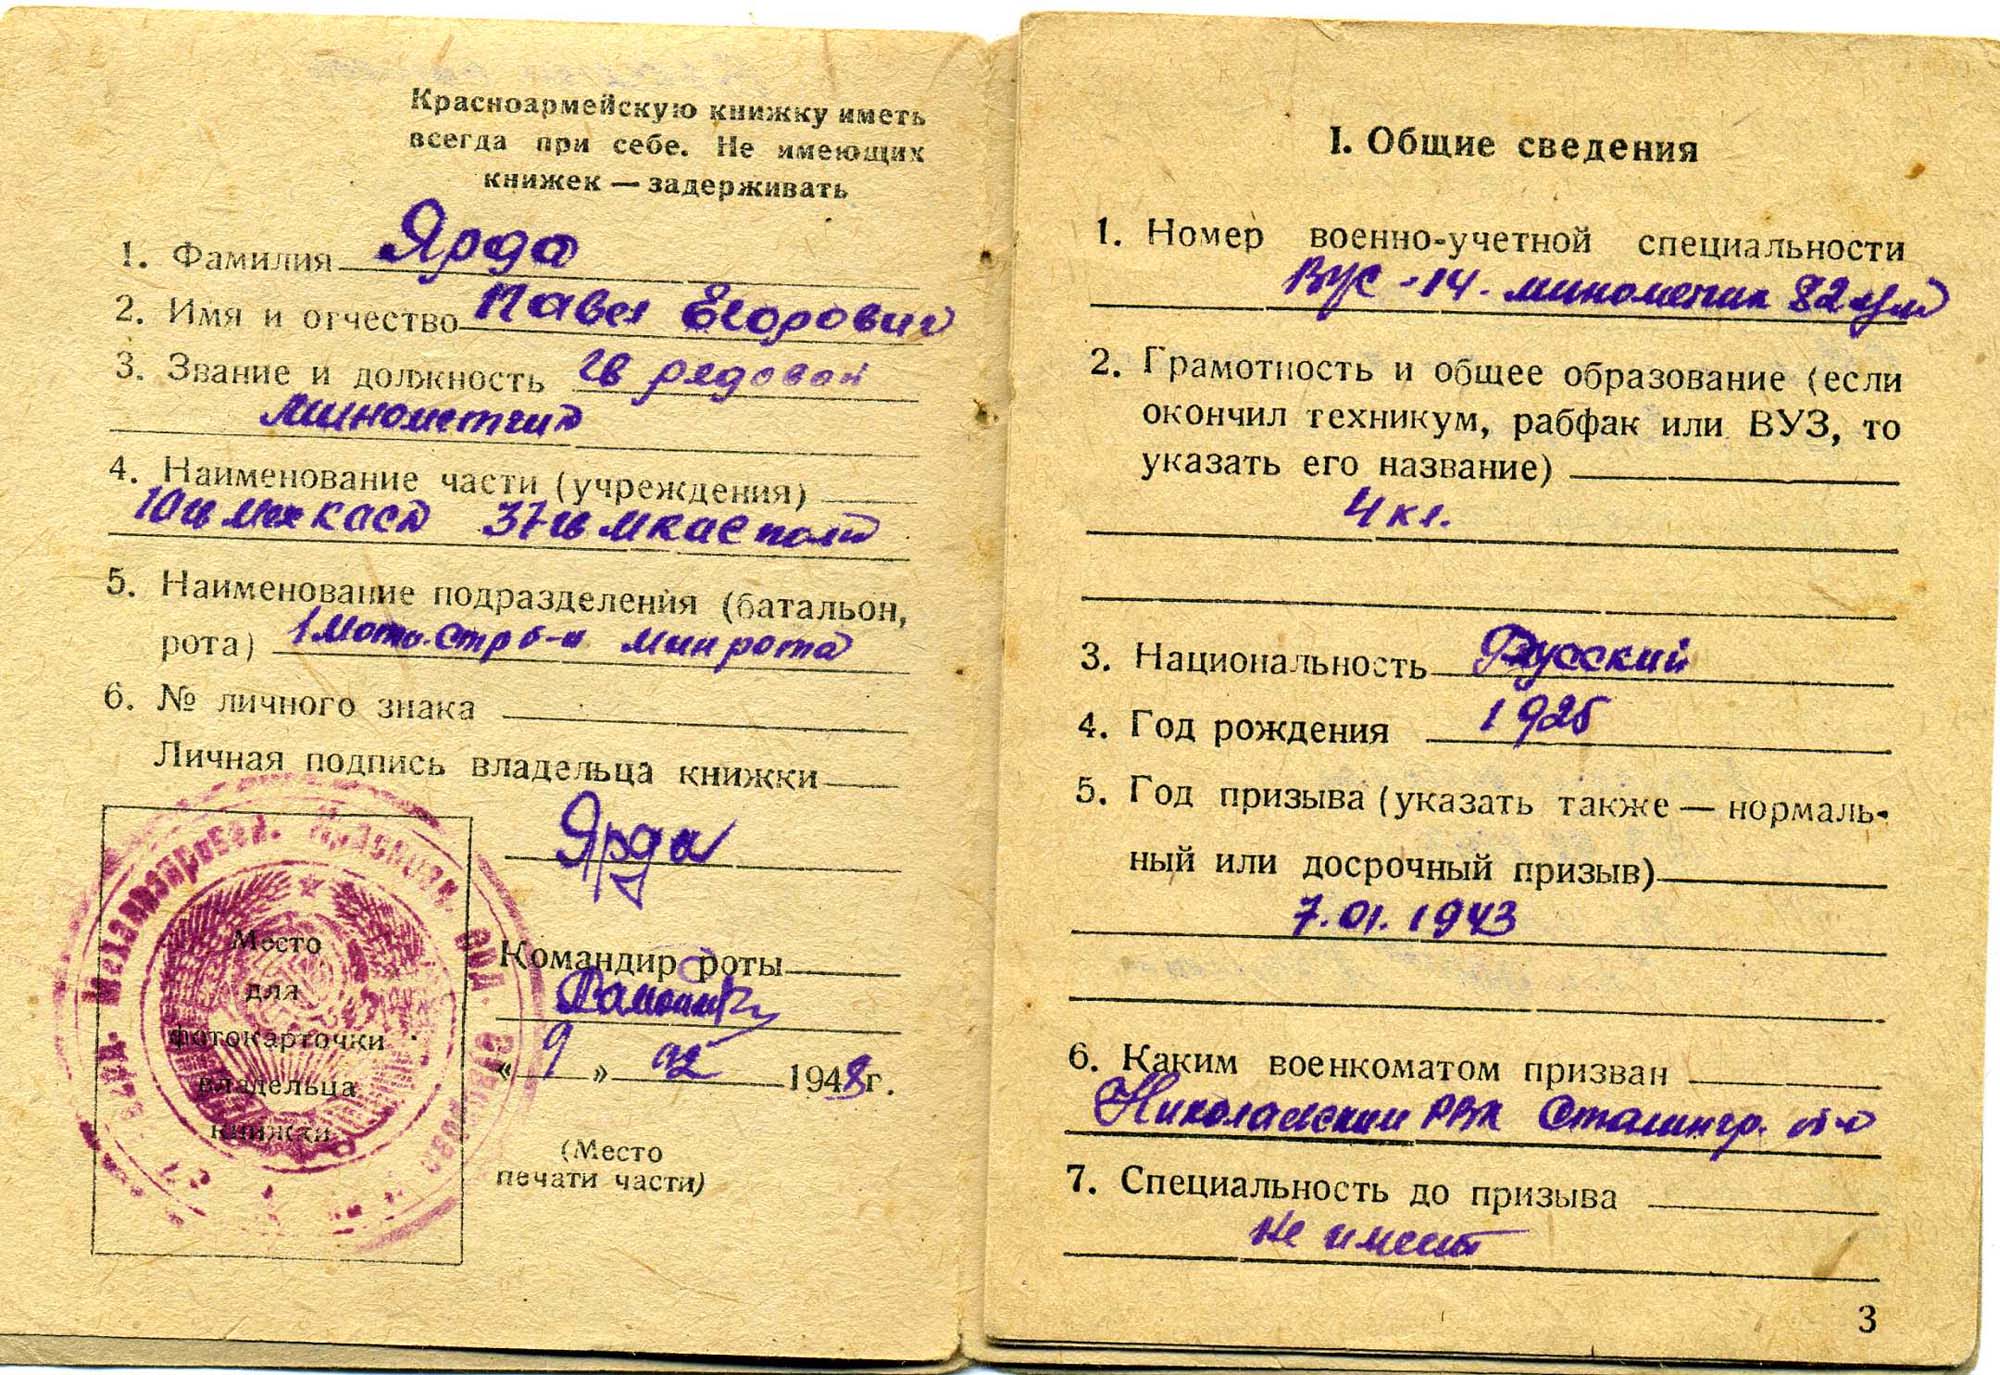 Красноармейскую книжку иметь
всегда при себе. Не имеющих
книжек — задерживать
1. Фамилия Ярда
2. Имя и отчество Павел Егорович
3. Звание и должность гв рядовой
минометчик
4. Наименование части (учреждения)
10 гв мех касд 37 гв мкас полк
5. Наименование подразделения (батальон,
рота) 1 мото. стр б-н минрота
6. № личного знака
Личная подпись владельца книжки
Ярда
Место
для
фотокарточки
владельца
книжки
Командир роты
« 9 » 02 1948г.
(Место
печати части)
I. Общие сведения
1. Номер военно-учетной специальности
ВУС-14. минометчик 82
2. Грамотность и общее образование (если
окончил техникум, рабфак или ВУЗ, то
указать его название)
4 кл.
3. Национальность Русский
4. Год рождения 1925
5. Год призыва (указать также — нормаль-
ный или досрочный призыв)
7.01.1943
6. Каким военкоматом призван
Николаевский РВК Сталингр.
7. Специальность до призыва
не имеет
3